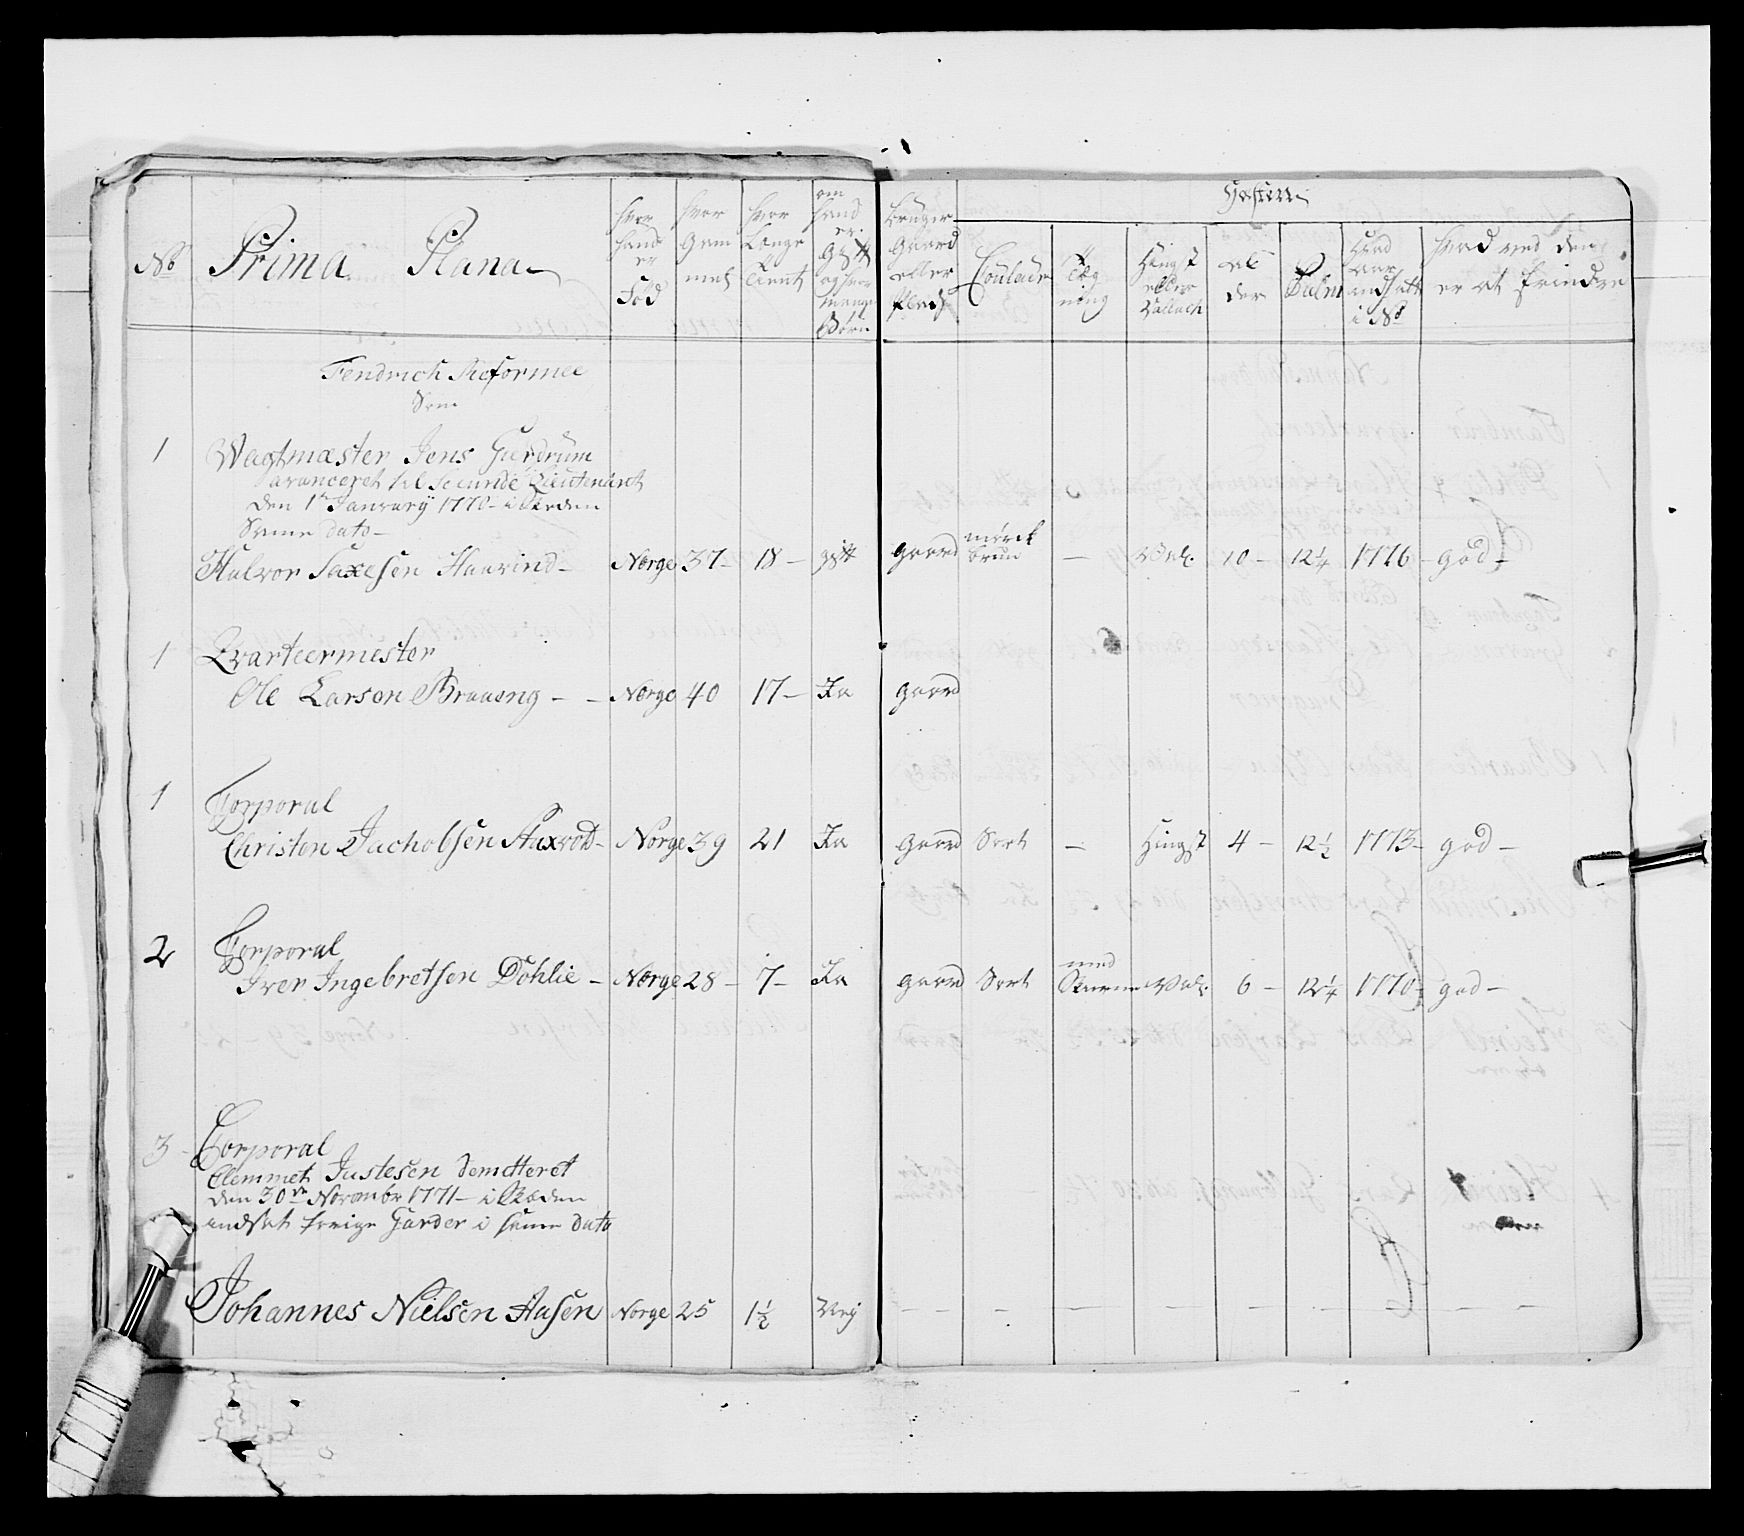 No
Prima Plana
hvor hand er Föd
hvor Gammel
hvor Længe Tient
om hand er Gift og hvor mange Börn
bruger Gaard eller Plads
Hesten
Couleur
Tegning
Hingst eller Vallack
Alder
Palm
Hvad Aar andsatt i No
Hvad ved den er at Erindre
Fendrich Reformee
Som
1 Wagtmæster Jens Gurdrum
avanceret til Secunde Lieutenant
den 1te January 1770 - i Steden
Samme dato -
Halvor Saxesen Haavind - Norge 37 - 18 - gift gaard mörck brun - Val. 10 - 12 1/4 1776 - god -
1 Qvarteermester
Ole Larsen Braaeng - - Norge 40 17 - Ja gaard
1 Corporal
Christen Jachobsen Haxrod - Norge 39 21 Ja gaard Sort - Hingst 4 - 12 1/2 1773 - god -
2 Corporal
Iver Ingebretsen Döhlie - Norge 28 - 7 - Ja gaard Sort med Stierne Val. 6 - 12 1/4 1770 - god -
3 - Corporal
Clemmet Justesen demitteret
den 30te Novembr 1771 - i Stæden
andsat frivige Garder i samme dato
Johannes Nielsen Aasen Norge 25 1 1/2 Nej - - - - - - - - -